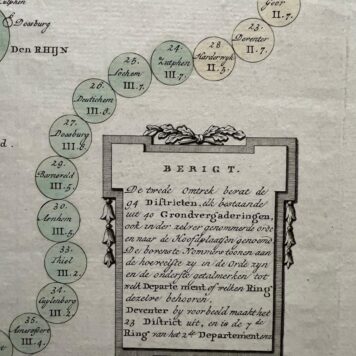 Zutphen
Doesburg
Den RHIJN
Goor
II. 7.
23.
Deventer
II. 7.
28.
Harderwijk
II. 5.
24.
Zutphen
III. 7.
25.
Lochem
III. 7.
26.
Deutichem
III. 8.
27.
Doesburg
III. 8.
29.
Barneveld
III. 5.
30.
Arnhem
III. 5.
33.
Thiel
III. 2.
34.
Cuylenburg
III. 2.
35.
Amersfoert
III. 4.
d.
BERIGT.
De twede Omtrek bevat de
94 Districten, elk bestaande
uit 40 Grondvergaderingen,
ook in der zelver genommerde orde
en naar de Hoofdplaatsen genoemd
De bovenste Nommers toonen aan
de hoeveelste zy in de Orde zyn
en de onderste getalmerken tot
welk Departement of welken Ring
dezelve behooren.
Deventer by voorbeeld maakt het
23 District uit, en is de 7de
Ring van het 2de Departement. enz.